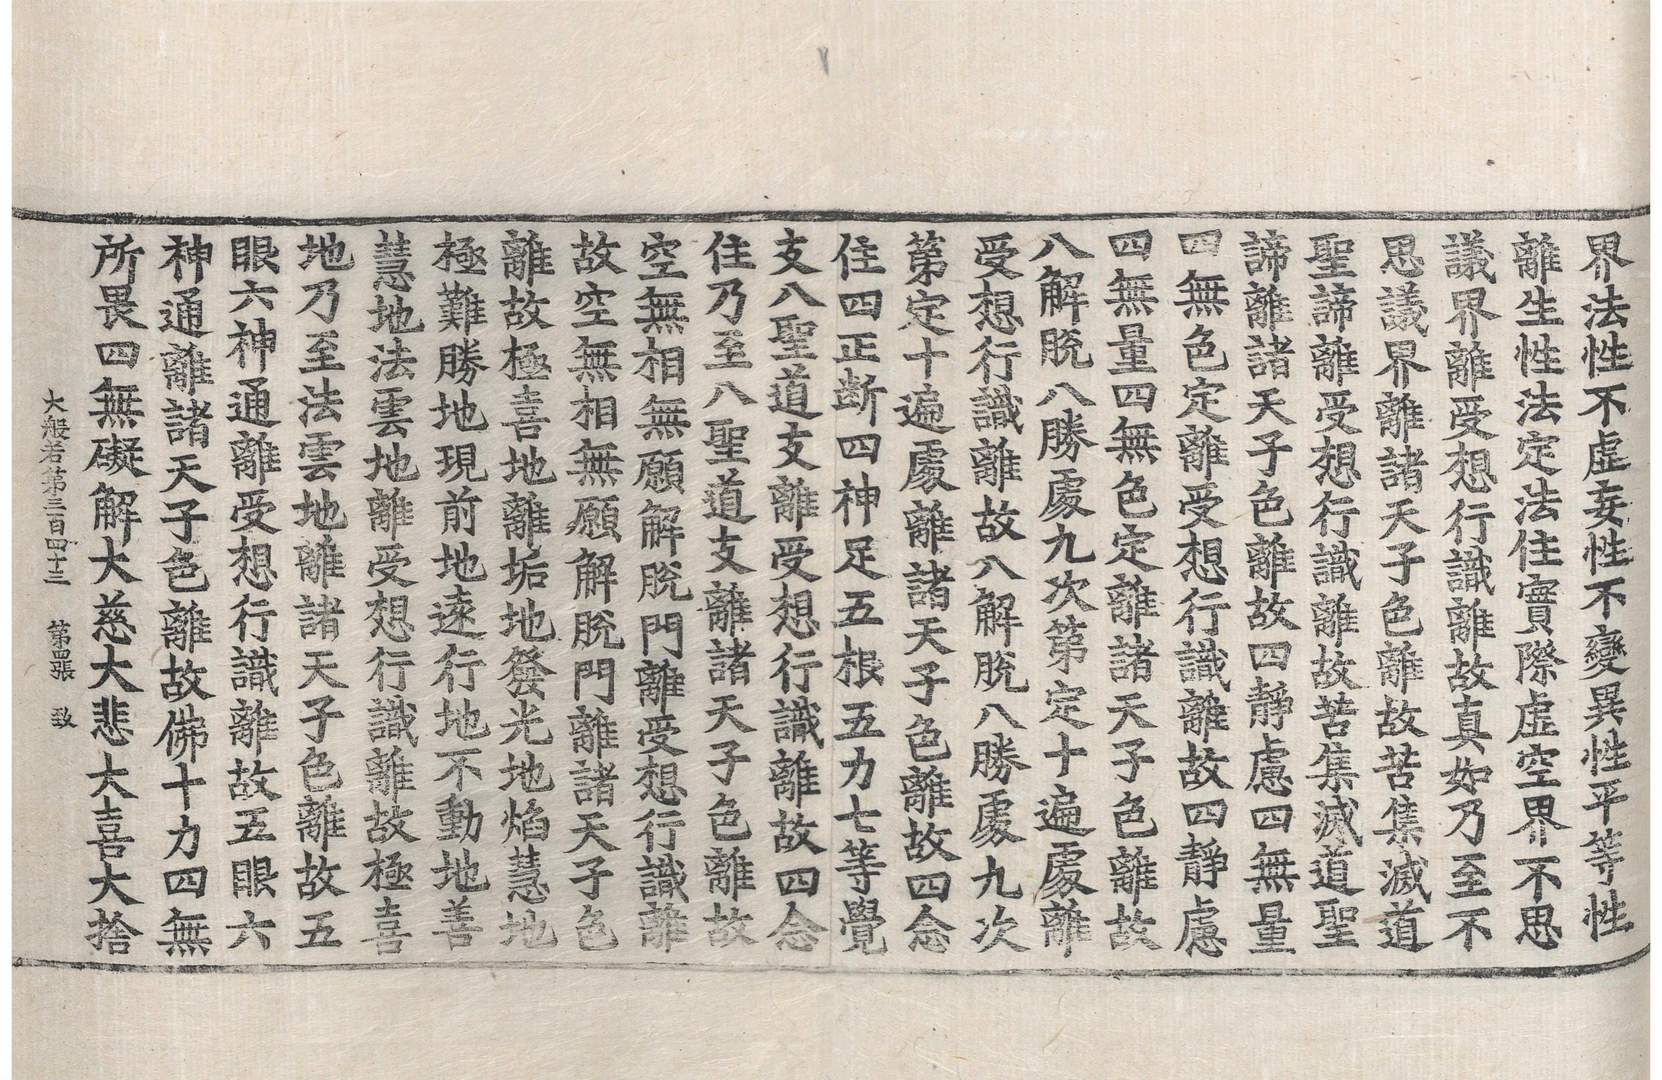 界法性不虛妄性不變異性平等性
離生性法定法住實際虛空界不思
議界離受想行識離故真如乃至不
思議界離諸天子色離故苦集滅道
聖諦離受想行識離故苦集滅道聖
諦離諸天子色離故四靜慮四無量
四無色定離受想行識離故四靜慮
四無量四無色定離諸天子色離故
八解脫八勝處九次第定十遍處離
受想行識離故八解脫八勝處九次
第定十遍處離諸天子色離故四念
住四正斷四神足五根五力七等覺
支八聖道支離受想行識離故四念
住乃至八聖道支離諸天子色離故
空無相無願解脫門離受想行識離
故空無相無願解脫門離諸天子色
離故極喜地離垢地發光地焰慧地
極難勝地現前地遠行地不動地善
慧地法雲地離受想行識離故極喜
地乃至法雲地離諸天子色離故五
眼六神通離受想行識離故五眼六
神通離諸天子色離故佛十力四無
所畏四無礙解大慈大悲大喜大捨
大般若第三百四十三 第四張 致